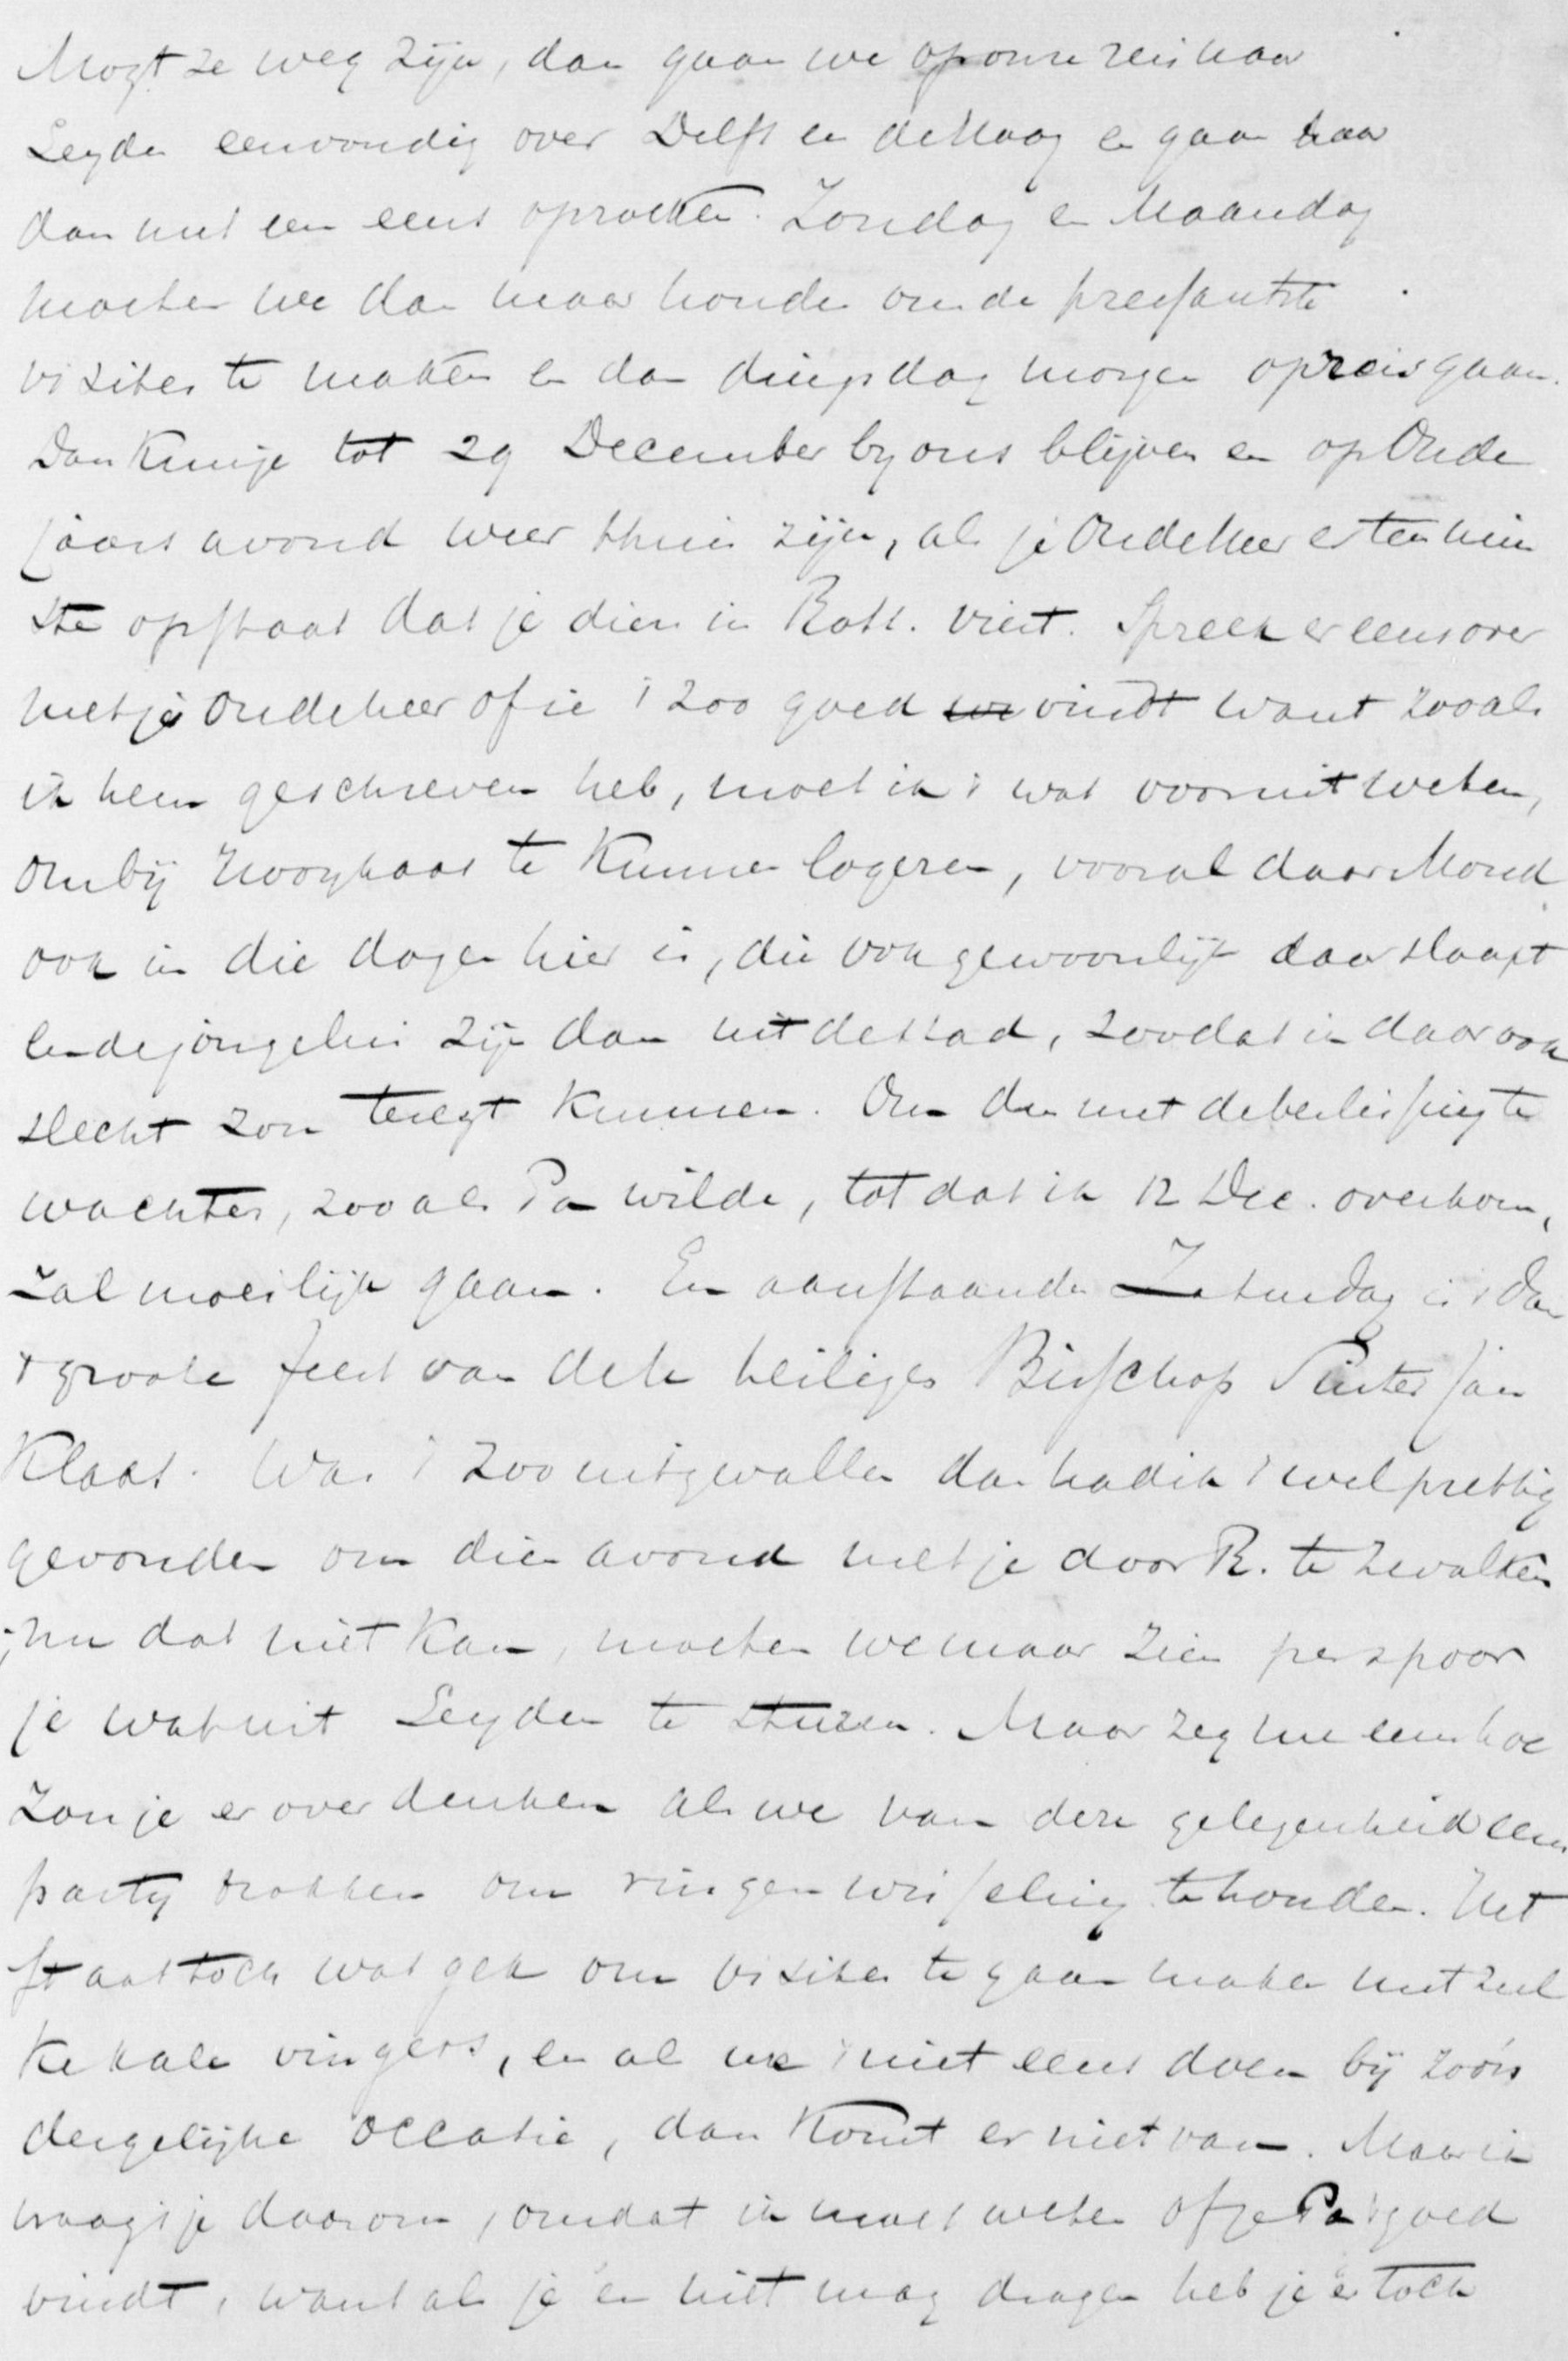 Mogt ze weg zijn, dan gaan we op onze reis naar
Leyden eenvoudig over Delft en de Haag en gaan haar
dan met een eens opzoeken. Zondag en Maandag
moeten we dan maar houden om de pressantste
visites te maken en dan dingsdag morgen op reis gaan.
Dan kun je tot 29 December by ons blijven en op Oude
jaars avond weer thuis zijn, als je Oudeheer er ten min
ste opstaat dat je dien in Rott. viert. Spreek er eens over
met je oudeheer of ie 't zoo goed vindt want zooals
ik hem geschreven heb, moet ik 't wat vooruit weten,
om bij Hooykaas te kunnen logeren, vooral daar Moud
ook in die dagen hier is, die ook gewoonlijk daar slaapt
en de jongelui zijn dan uit de stad, zoodat ik daar ook
slecht zou teregt kunnen. Om dan met de beslissing te
wachten, zooals Pa wilde, tot dat ik 12 Dec. overkom,
zal moeilijk gaan. En aanstaande Zaturdag is 't dan
't groote feest van den heiligen Bisschop Sinter Jan
Klaas. Was 't zoo uitgevallen dan had ik 't wel prettig
gevonden om dien avond met je door R. te zwalken
; nu dat niet kan, moeten we maar zien per spoor
je wat uit Leyden te sturen. Maar zeg me eens hoe
zou je er over denken als we van deze gelegenheid eens
party trokken om ringenwisseling te houden. Het
staat toch wat gek om visites te gaan maken met zul
ke kale vingers, en als we 't niet eens doen bij zoo'n
dergelijke occasie, dan komt er niet van. Maar ik
vraag 't je daarom, omdat ik moet weten of je Pa 't goed
vindt, want als je 'em niet mag dragen heb je 'er toch